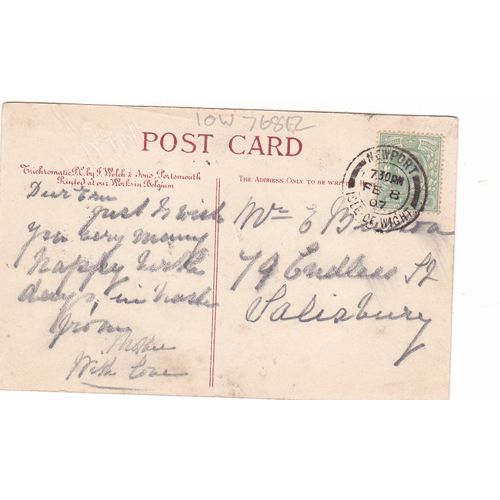 IOW 768E2
POST CARD
Trichromatic P.C. by F. Welch & Sons, Portsmouth
Printed at our Works in Belgium
THE ADDRESS ONLY TO BE WRITTEN
NEWPORT
7.30PM
FE 8
07
ISLE OF WIGHT
Dear Ern
just to wish
you very many
happy birth
days, in haste
from
Mother
With Love
Mr E
79 Endless St
Salisbury